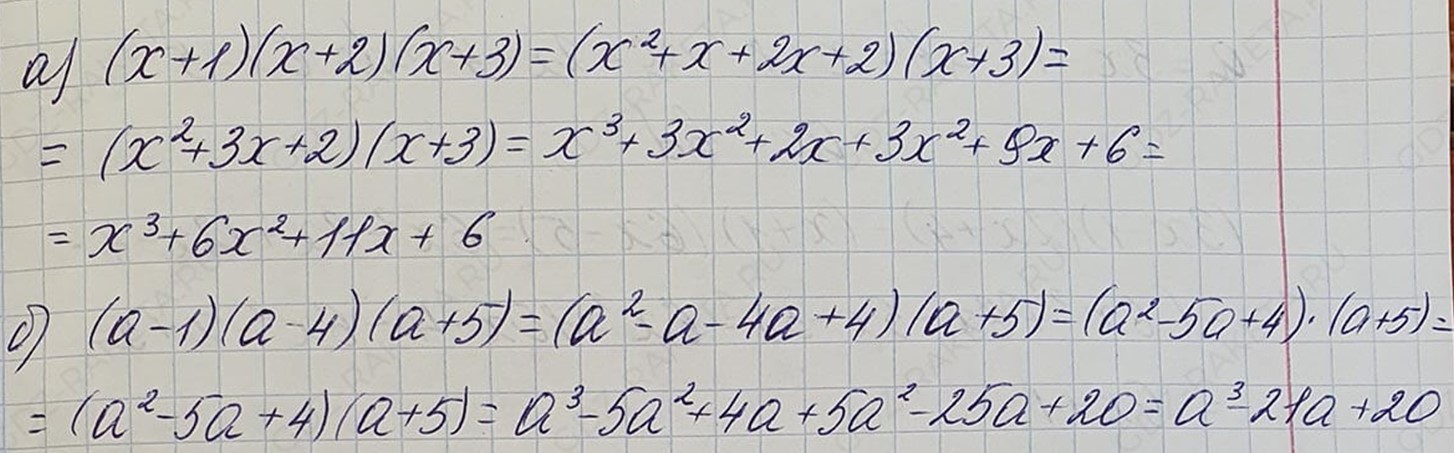 а) (x+1)(x+2)(x+3)=(x²+x+2x+2)(x+3)=
= (x²+3x+2)(x+3)= x³+3x²+2x+3x²+9x+6=
= x³+6x²+11x+6
б) (a-1)(a-4)(a+5)=(a²-a-4a+4)(a+5)=(a²-5a+4)·(a+5)=
= (a²-5a+4)(a+5)= a³-5a²+4a+5a²-25a+20= a³-21a+20